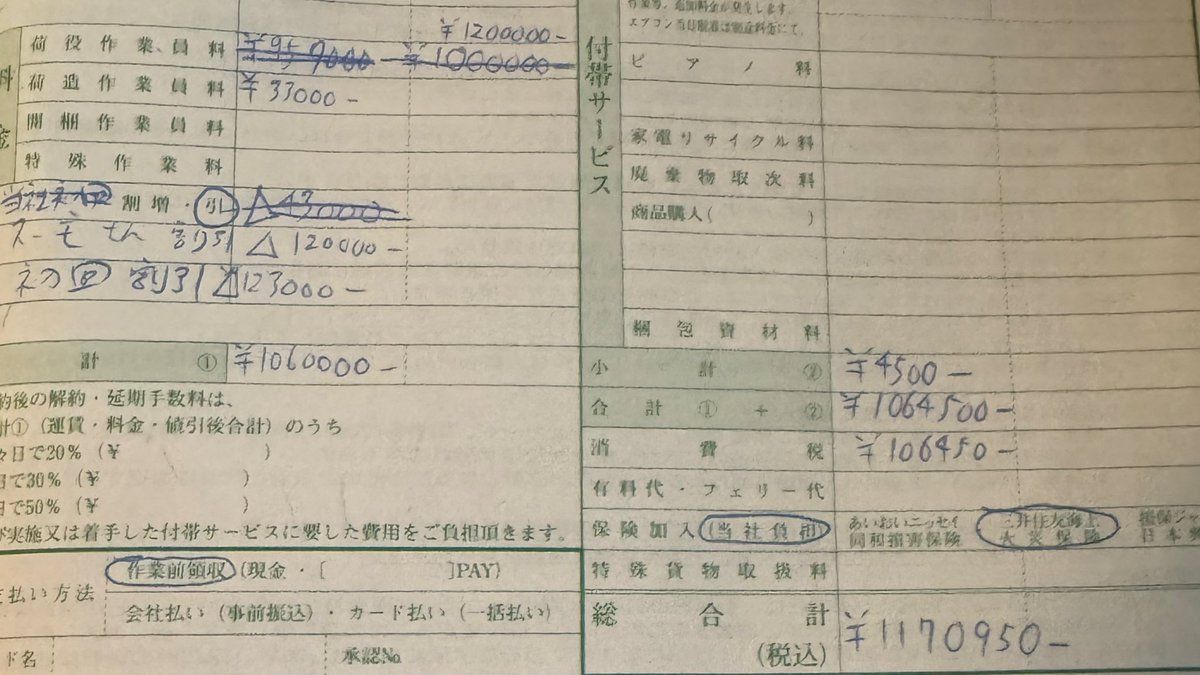 ¥1200000-
荷役作業員料 ¥1000000-
荷造作業員料 ¥33000-
開梱作業員料
特殊作業料
割増・引 △43000
スーモさん割引 △120000-
初回割引 △123000-
計 ① ¥1060000-
約後の解約・延期手数料は、
計①(運賃・料金・値引後合計)のうち
々日で20%(¥ )
日で30%(¥ )
日で50%(¥ )
実施又は着手した付帯サービスに要した費用をご負担頂きます。
払い方法
作業前領収(現金・[ ]PAY)
会社払い(事前振込)・カード払い(一括払い)
ド名
承認No.
付帯サービス
ピアノ料
家電リサイクル料
廃棄物取次料
商品購入( )
梱包資材料
小計 ② ¥4500-
合計 ① + ② ¥1064500-
消費税 ¥106450-
有料代・フェリー代
保険加入(当社負担) あいおいニッセイ同和損害保険 三井住友海上火災保険
特殊貨物取扱料
総合計(税込) ¥1170950-